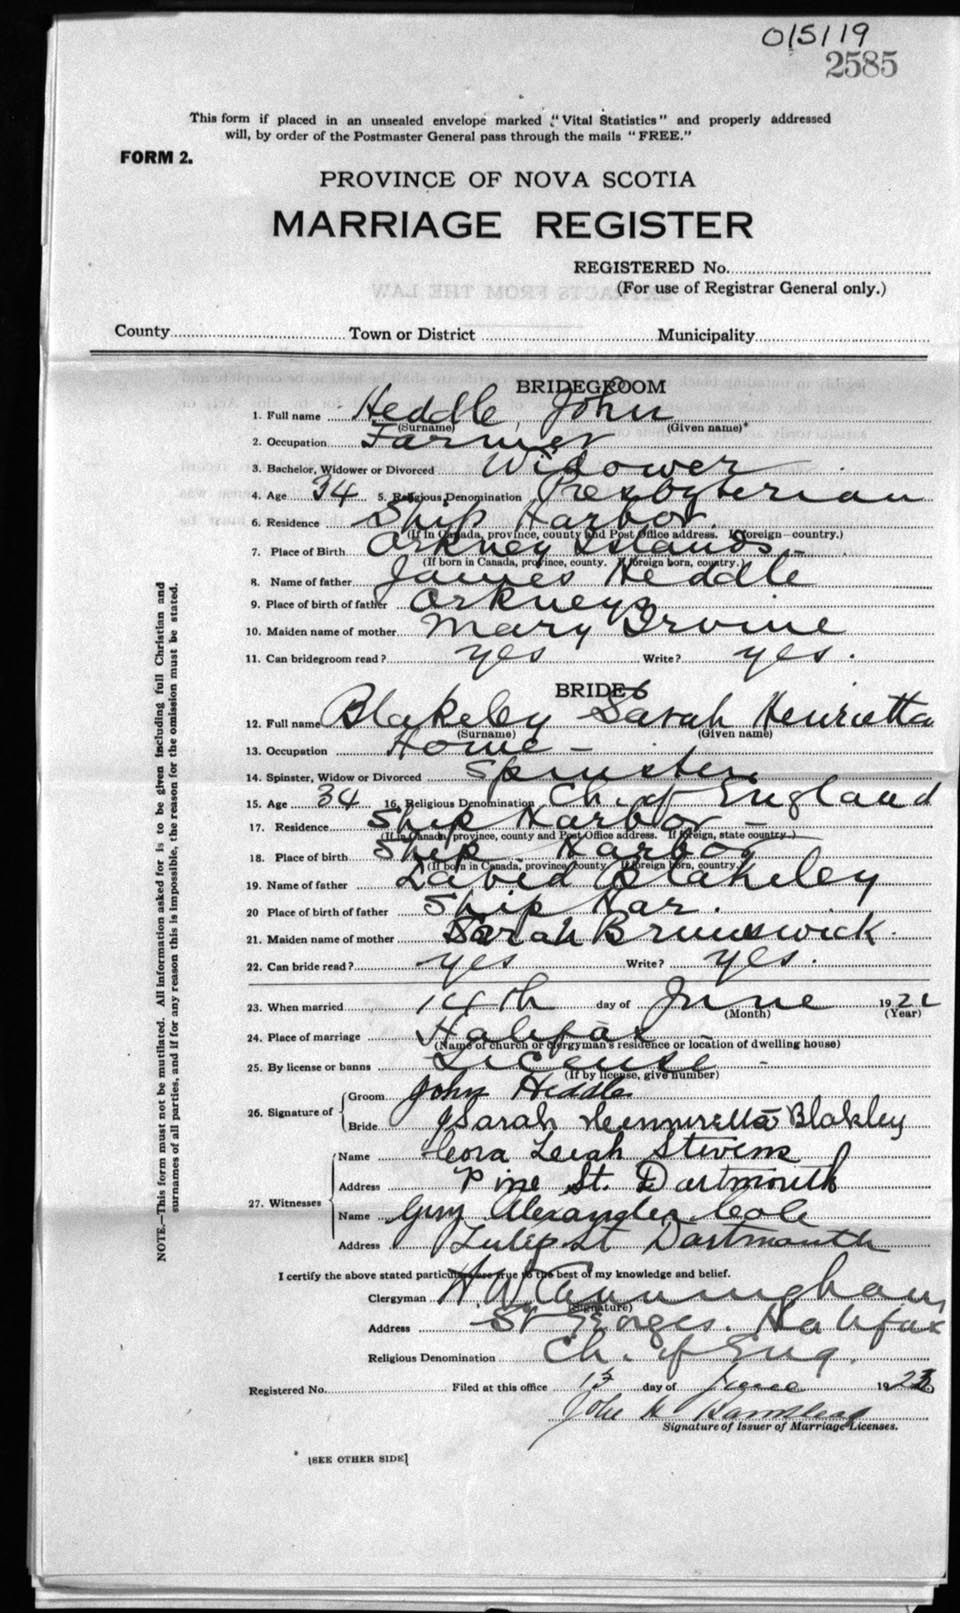 015119
2585
This form if placed in an unsealed envelope marked "Vital Statistics" and properly addressed
will, by order of the Postmaster General pass through the mails "FREE."
FORM 2.
PROVINCE OF NOVA SCOTIA
MARRIAGE REGISTER
REGISTERED No.
(For use of Registrar General only.)
County Town or District Municipality
BRIDEGROOM
1. Full name Heddle, John
(Surname) (Given name)*
2. Occupation Farmer
3. Bachelor, Widower or Divorced Widower
4. Age 34 5. Religious Denomination Presbyterian
6. Residence Ship Harbor.
(If in Canada, province, county and Post Office address. If foreign—country.)
7. Place of Birth Orkney Islands -
(If born in Canada, province, county. If foreign born, country.)
8. Name of father James Heddle
9. Place of birth of father Orkneys
10. Maiden name of mother Mary Irvine
11. Can bridegroom read? yes Write? yes.
BRIDE
12. Full name Blakeley Sarah Henrietta
(Surname) (Given name)
13. Occupation Home -
14. Spinster, Widow or Divorced Spinster
15. Age 34 16. Religious Denomination Ch. of England
17. Residence Ship Harbor -
(If in Canada, province, county and Post Office address. If foreign, state country.)
18. Place of birth Ship Harbor
(If born in Canada, province, county. If foreign born, country.)
19. Name of father David Blakeley
20 Place of birth of father Ship Har.
21. Maiden name of mother Sarah Brunswick.
22. Can bride read? yes Write? yes.
23. When married 14th day of June 192
(Month) (Year)
24. Place of marriage Halifax -
(Name of church or clergyman's residence or location of dwelling house)
25. By license or banns License -
(If by license, give number)
26. Signature of
Groom John Heddle
Bride Sarah Hennuretta Blakley
27. Witnesses
Name Leah Stevens
Address Pine St. Dartmouth
Name Alexander Cole
Address Tulip St Dartmouth
I certify the above stated particulars are true to the best of my knowledge and belief.
Clergyman H. W. Cunningham
(Signature)
Address St Georges. Halifax
Religious Denomination Ch. of Eng.
Registered No. Filed at this office day of June 192
John
Signature of Issuer of Marriage Licenses.
* [SEE OTHER SIDE]
NOTE.—This form must not be mutilated. All information asked for is to be given including full Christian and
surnames of all parties, and if for any reason this is impossible, the reason for the omission must be stated.